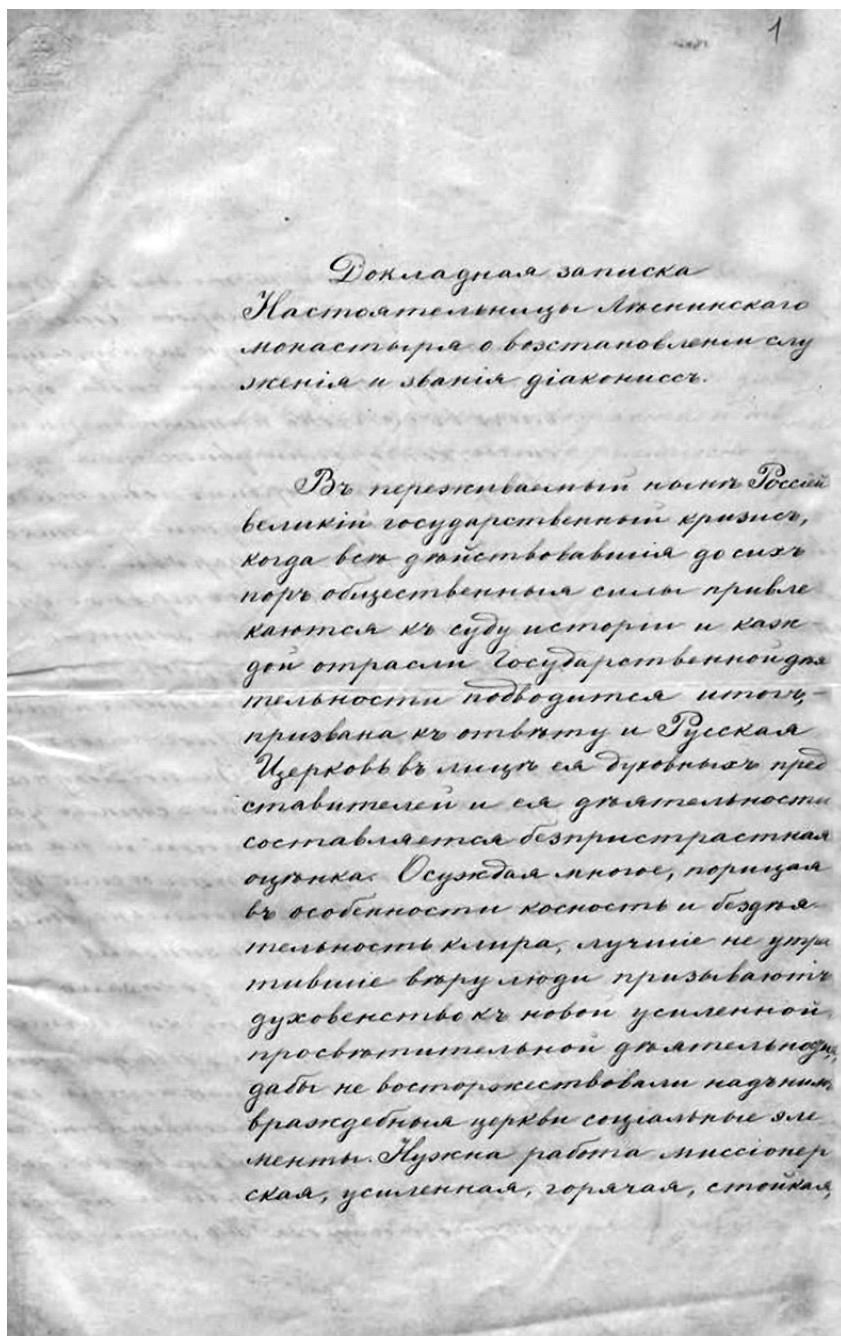 1
Докладная записка
Настоятельницы Лѣснинскаго
монастыря о возстановленіи слу
женія и званія діакониссъ.
Въ переживаемый нынѣ Россіей
великій государственный кризисъ,
когда всѣ дѣйствовавшія до сихъ
поръ общественныя силы привле
каются къ суду исторіи и каж-
дой отрасли государственной дѣя
тельности подводится итогъ,-
призвана къ отвѣту и Русская
Церковь въ лицѣ ея духовныхъ пред
ставителей и ея дѣятельности
составляется безпристрастная
оцѣнка. Осуждая многое, порицая
въ особенности косность и бездѣя-
тельность клира, лучшіе не утра
тившіе вѣру люди призываютъ
духовенство къ новой усиленной
просвѣтительной дѣятельности,
дабы не восторжествовали надъ нимъ
враждебныя церкви соціальные эле
менты. Нужна работа миссіонер
ская, усиленная, горячая, стойкая,